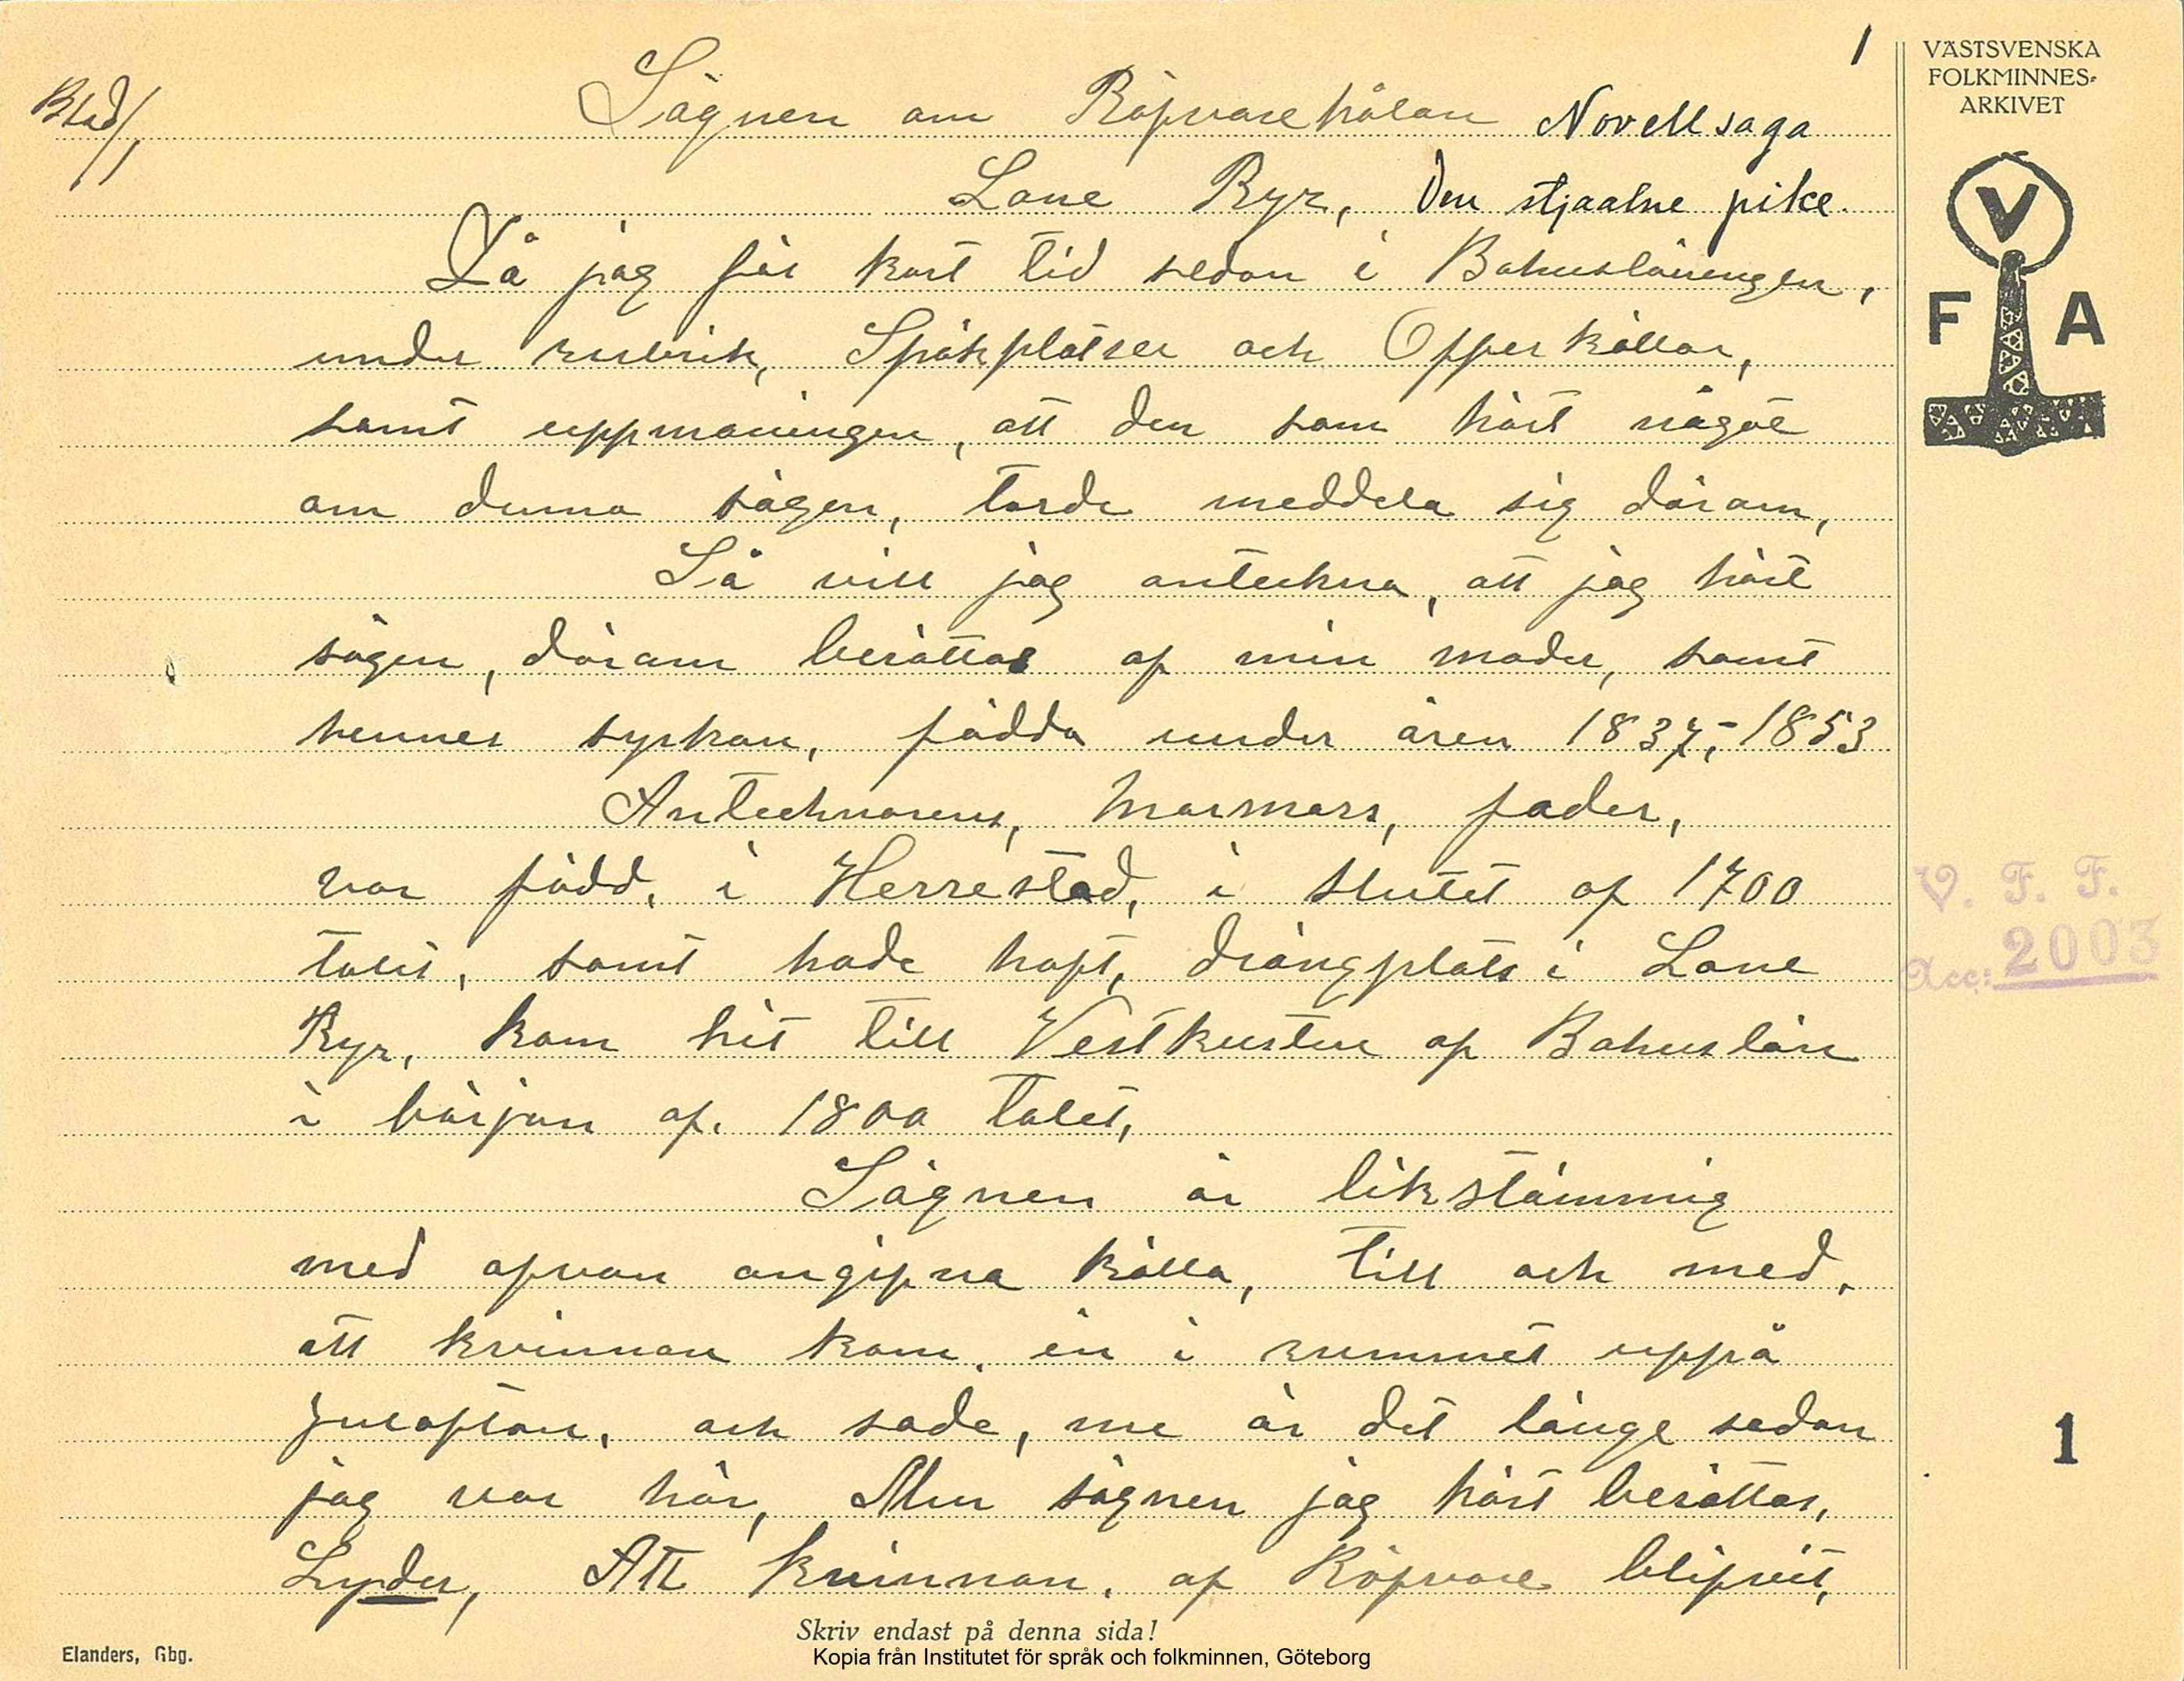 1
VÄSTSVENSKA
FOLKMINNES-
ARKIVET
Blad 1
Sägnen om Röfvarehålan Novellsaga
Lane Ryr, Den stjaalne pike.
V
F A
Då jag för kort tid sedan i Bohusläningen,
under rubrik, Spökplatser och Offerkällor,
samt uppmaningen, att den som hört något
om denna sägen, torde meddela sig därom,
Så vill jag anteckna, att jag hört
sägen, därom berättas af min moder, samt
hennes syskon, födda under åren 1837,-1853
Antecknarens, Mormors, fader,
var född, i Herrestad, i slutet af 1700
talet, samt hade haft, drängplats i Lane
Ryr, kom hit till Vestkusten af Bohuslän
i början af. 1800 talet,
V. F. F.
Acc: 2003
Sägnen är likstämmig
med ofvan angifna källa, till och med,
att kvinnan kom, in i rummet uppå
Julafton, och sade, nu är det länge sedan
jag var här, Men sägnen jag hört berättas,
Lyder, Att kvinnan, af Röfvare blifvit,
1
Skriv endast på denna sida!
Elanders, Gbg.
Kopia från Institutet för språk och folkminnen, Göteborg